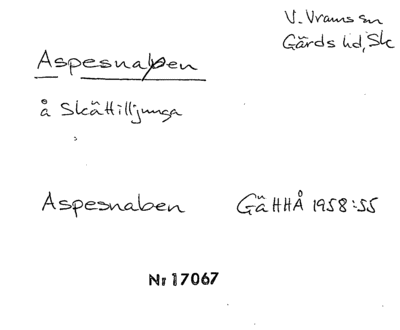 V. Vrams sn
Gärds hd, Sk
Aspesnaben
å Skättilljunga
Aspesnaben GäHHÅ 1958:55
Nr 17067